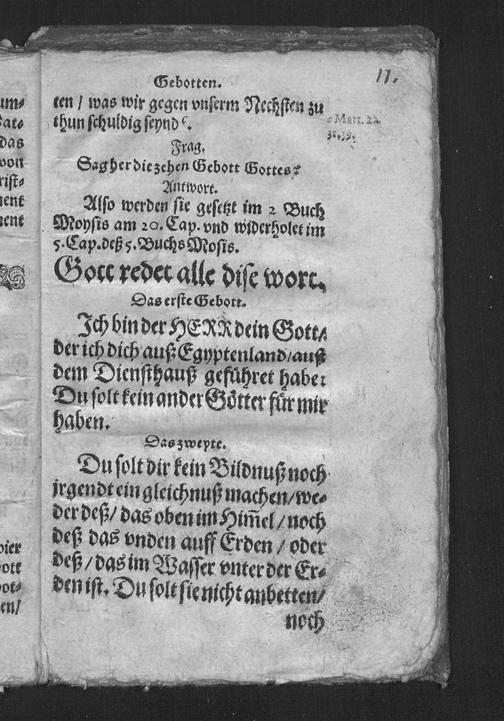 Gebotten.
11.
ten / was wir gegen vnserm Nechsten zu
thun schuldig seynd c.
c Matt. 22.
Frag.
Sag her die zehen Gebott Gottes?
Antwort.
Also werden sie gesetzt im 2 Buch
Moysis am 20. Cap. vnd widerholet im
5. Cap. deß 5. Buchs Mosis.
Gott redet alle dise wort.
Das erste Gebott.
Ich bin der HERR dein Gott/
der ich dich auß Egyptenland / auß
dem Diensthauß geführet habe:
Du solt kein ander Götter für mir
haben.
Das zweyte.
Du solt dir kein Bildnuß noch
jrgendt ein gleichnuß machen / we-
der deß / das oben im Him̃el / noch
deß das vnden auff Erden / oder
deß / das im Wasser vnter der Er-
den ist. Du solt sie nicht anbetten /
noch
um-
das
von
rist-
ment
ment
vier
ott
bot-
en/